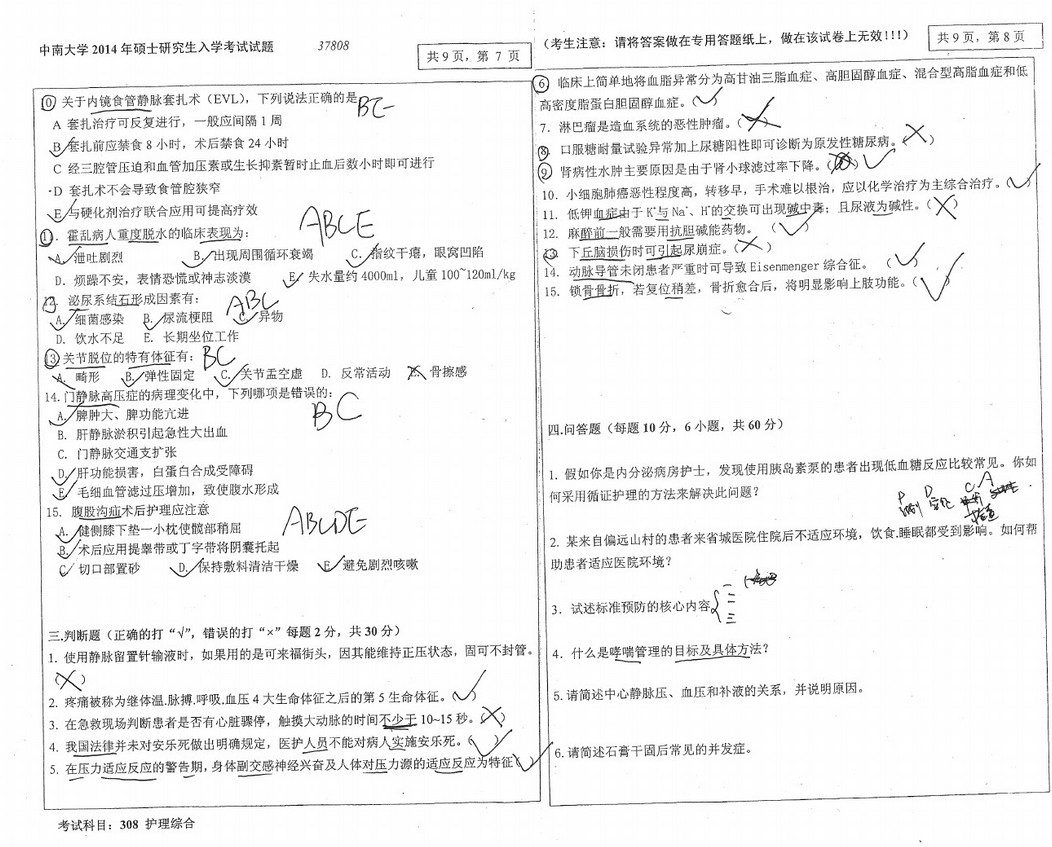 中南大学 2014 年硕士研究生入学考试试题
37808
共 9 页，第 7 页
10 关于内镜食管静脉套扎术（EVL），下列说法正确的是
BE
A 套扎治疗可反复进行，一般应间隔 1 周
B 套扎前应禁食 8 小时，术后禁食 24 小时
C 经三腔管压迫和血管加压素或生长抑素暂时止血后数小时即可进行
D 套扎术不会导致食管腔狭窄
E 与硬化剂治疗联合应用可提高疗效
ABCE
11. 霍乱病人重度脱水的临床表现为：
A. 泄吐剧烈 B. 出现周围循环衰竭 C. 指纹干瘪，眼窝凹陷
D. 烦躁不安，表情恐慌或神志淡漠 E. 失水量约 4000ml，儿童 100~120ml/kg
12. 泌尿系结石形成因素有：
ABC
A. 细菌感染 B. 尿流梗阻 C. 异物
D. 饮水不足 E. 长期坐位工作
13 关节脱位的特有体征有：
BC
A. 畸形 B. 弹性固定 C. 关节盂空虚 D. 反常活动 E. 骨擦感
14. 门静脉高压症的病理变化中，下列哪项是错误的：
BC
A. 脾肿大、脾功能亢进
B. 肝静脉淤积引起急性大出血
C. 门静脉交通支扩张
D. 肝功能损害，白蛋白合成受障碍
E. 毛细血管滤过压增加，致使腹水形成
15. 腹股沟疝术后护理应注意
ABCDE
A. 健侧膝下垫一小枕使髋部稍屈
B. 术后应用提睾带或丁字带将阴囊托起
C 切口部置砂 D. 保持敷料清洁干燥 E. 避免剧烈咳嗽
三.判断题（正确的打“√”，错误的打“×”每题 2 分，共 30 分）
1. 使用静脉留置针输液时，如果用的是可来福街头，因其能维持正压状态，固可不封管。
（×）
2. 疼痛被称为继体温.脉搏.呼吸.血压 4 大生命体征之后的第 5 生命体征。（√）
3. 在急救现场判断患者是否有心脏骤停，触摸大动脉的时间不少于 10~15 秒。（×）
4. 我国法律并未对安乐死做出明确规定，医护人员不能对病人实施安乐死。（√）
5. 在压力适应反应的警告期，身体副交感神经兴奋及人体对压力源的适应反应为特征（√）
考试科目：308 护理综合
（考生注意：请将答案做在专用答题纸上，做在该试卷上无效!!!）
共 9 页，第 8 页
6. 临床上简单地将血脂异常分为高甘油三脂血症、高胆固醇血症、混合型高脂血症和低
高密度脂蛋白胆固醇血症。（√）
7. 淋巴瘤是造血系统的恶性肿瘤。（×）
8. 口服糖耐量试验异常加上尿糖阳性即可诊断为原发性糖尿病。（×）
9. 肾病性水肿主要原因是由于肾小球滤过率下降。（√）
10. 小细胞肺癌恶性程度高，转移早，手术难以根治，应以化学治疗为主综合治疗。（√）
11. 低钾血症由于 K⁺与 Na⁺、H⁺的交换可出现碱中毒；且尿液为碱性。（×）
12. 麻醉前一般需要用抗胆碱能药物。（√）
13. 下丘脑损伤时可引起尿崩症。（×）
14. 动脉导管未闭患者严重时可导致 Eisenmenger 综合征。（√）
15. 锁骨骨折，若复位稍差，骨折愈合后，将明显影响上肢功能。（√）
四.问答题（每题 10 分，6 小题，共 60 分）
1. 假如你是内分泌病房护士，发现使用胰岛素泵的患者出现低血糖反应比较常见。你如
何采用循证护理的方法来解决此问题？
P D C A
2. 某来自偏远山村的患者来省城医院住院后不适应环境，饮食.睡眠都受到影响。如何帮
助患者适应医院环境？
3. 试述标准预防的核心内容
一
二
三
4. 什么是哮喘管理的目标及具体方法？
5. 请简述中心静脉压、血压和补液的关系，并说明原因。
6. 请简述石膏干固后常见的并发症。